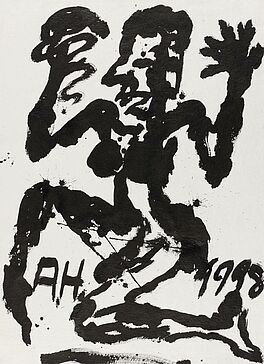 A.H. 1998